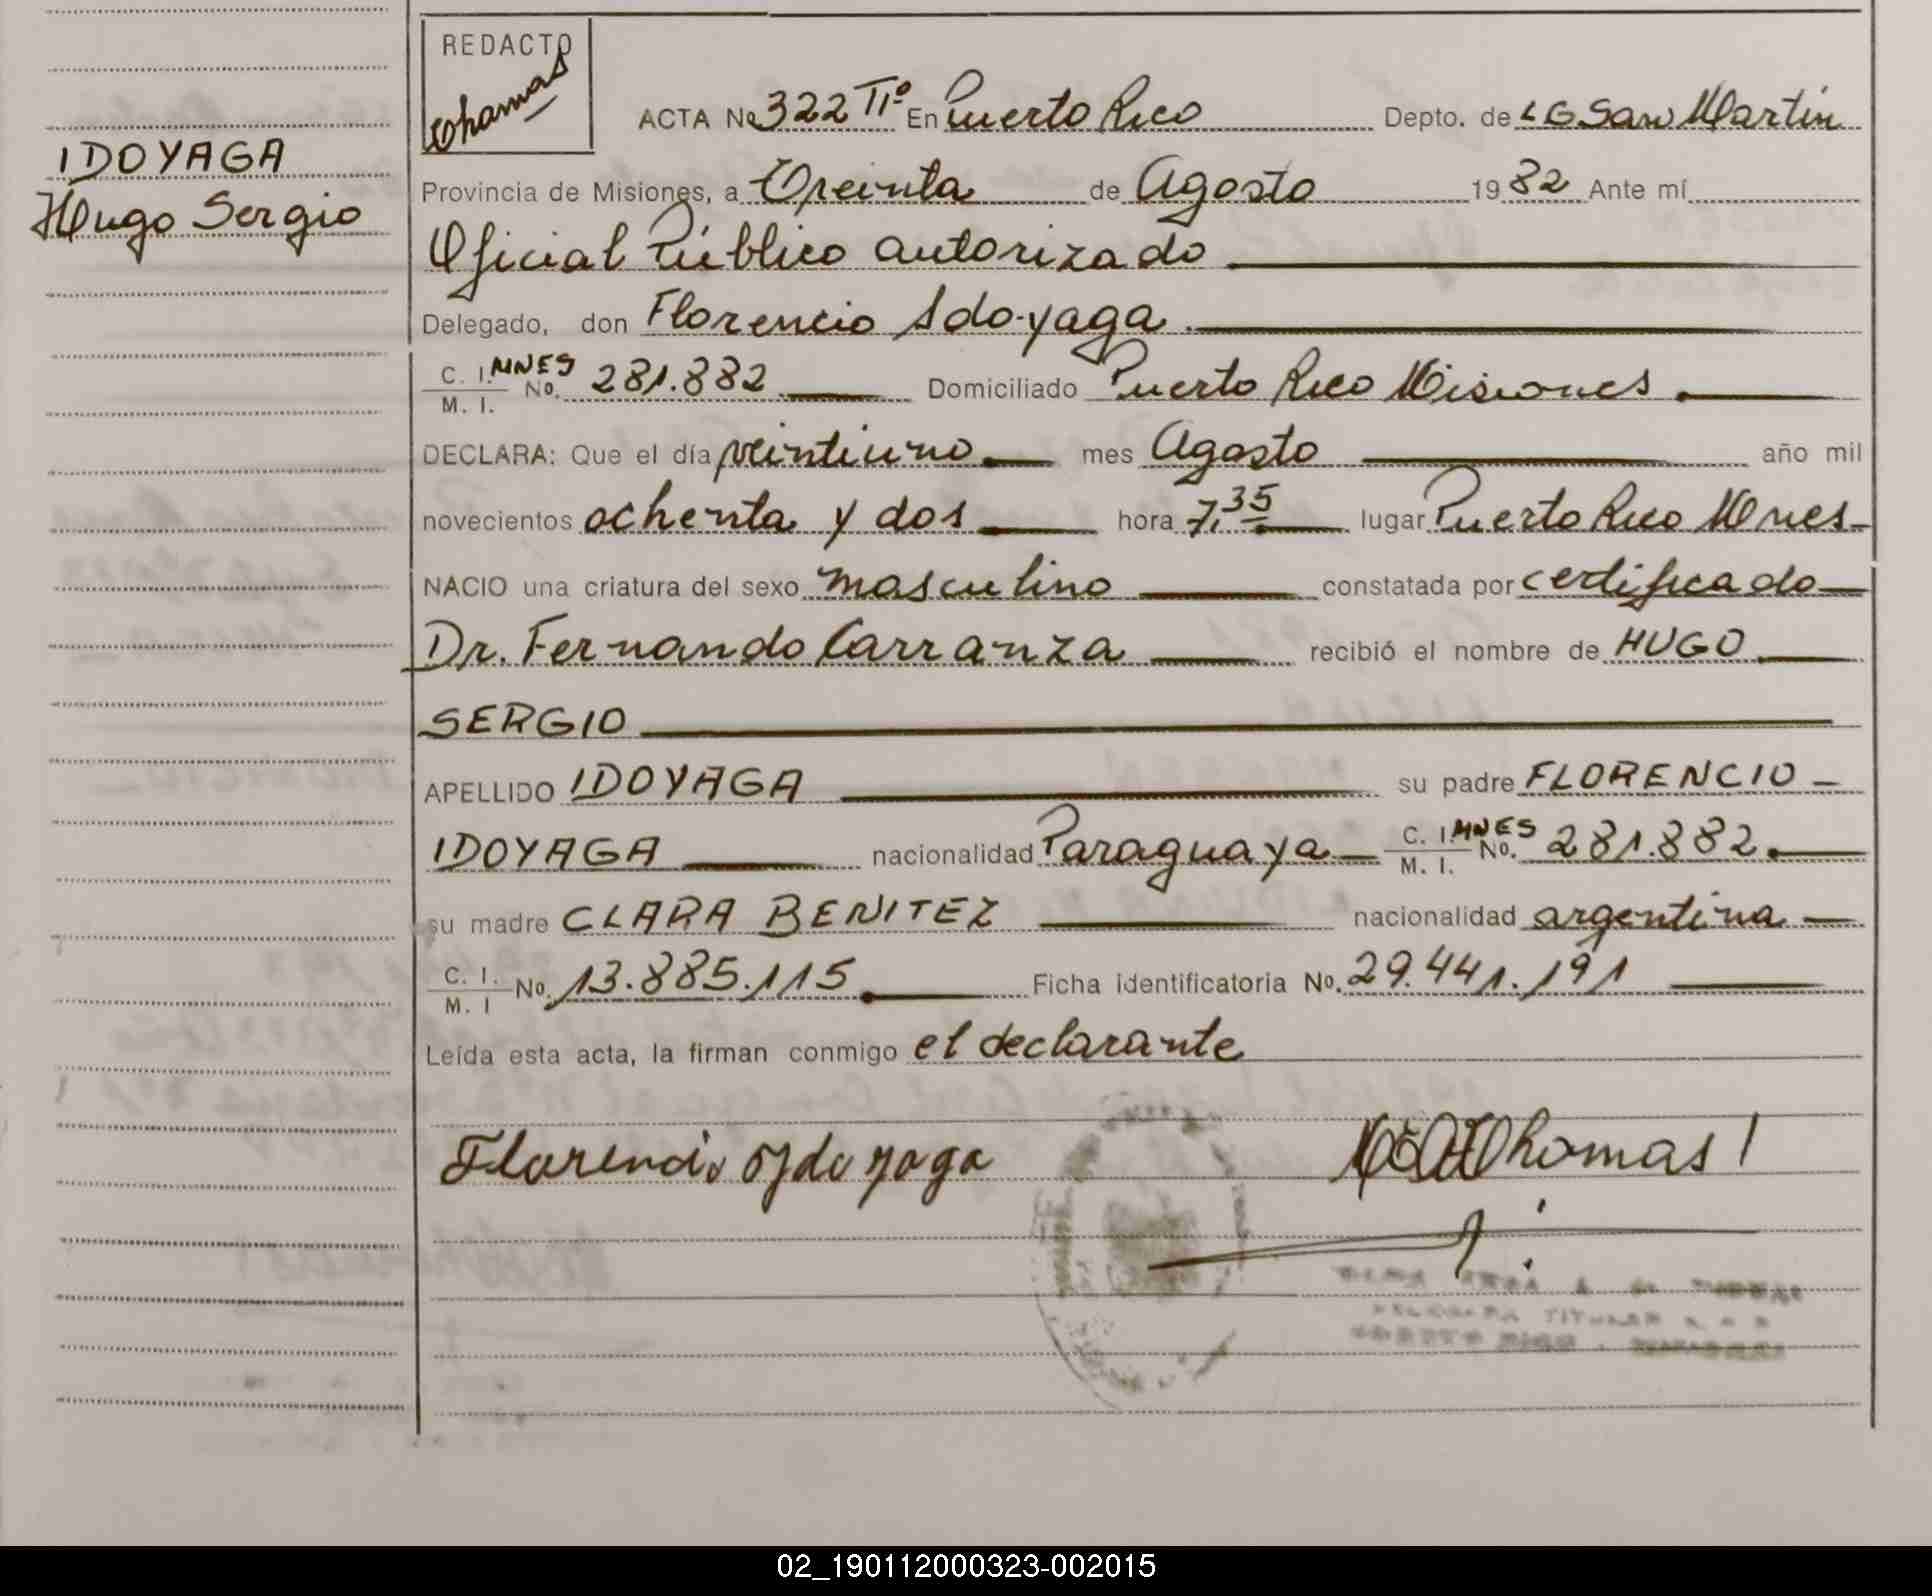 REDACTO
Thomas
IDOYAGA
Hugo Sergio
ACTA No 322 IIº En Puerto Rico Depto. de L G San Martin
Provincia de Misiones, a Treinta de Agosto 1982 Ante mí
Oficial Público autorizado
Delegado, don Florencio Idoyaga.
C. I. MNES
M. I. No. 281.882 Domiciliado Puerto Rico Misiones
DECLARA: Que el día veintiuno mes Agosto año mil
novecientos ochenta y dos hora 7,35 lugar Puerto Rico Mnes
NACIO una criatura del sexo masculino constatada por certificado
Dr. Fernando Carranza recibió el nombre de HUGO
SERGIO
APELLIDO IDOYAGA su padre FLORENCIO
IDOYAGA nacionalidad Paraguaya C. I. MNES M. I. No. 281.882.
su madre CLARA BENITEZ nacionalidad argentina
C. I. M. I No. 13.885.115. Ficha identificatoria No. 29.441.191
Leída esta acta, la firman conmigo el declarante
Florencio Ydoyaga Thomas
DELEGADA TITULAR
PUERTO RICO - MISIONES
02_190112000323-002015